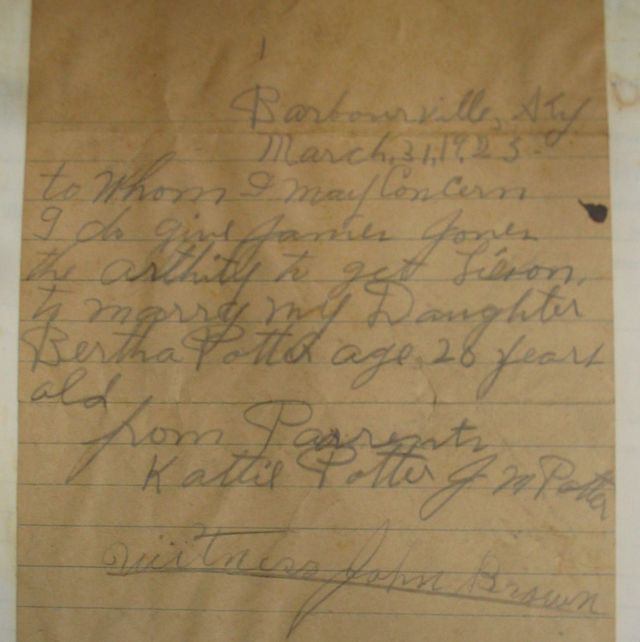 Barbourville, Ky
March, 31, 1925.
to Whom I may Concern
I do give James Jones
the arthity to get Lison,
to marry my Daughter
Bertha Potter age 28 years
old
from Parrents
Kattie Potter J M Potter
Wittness John Brown